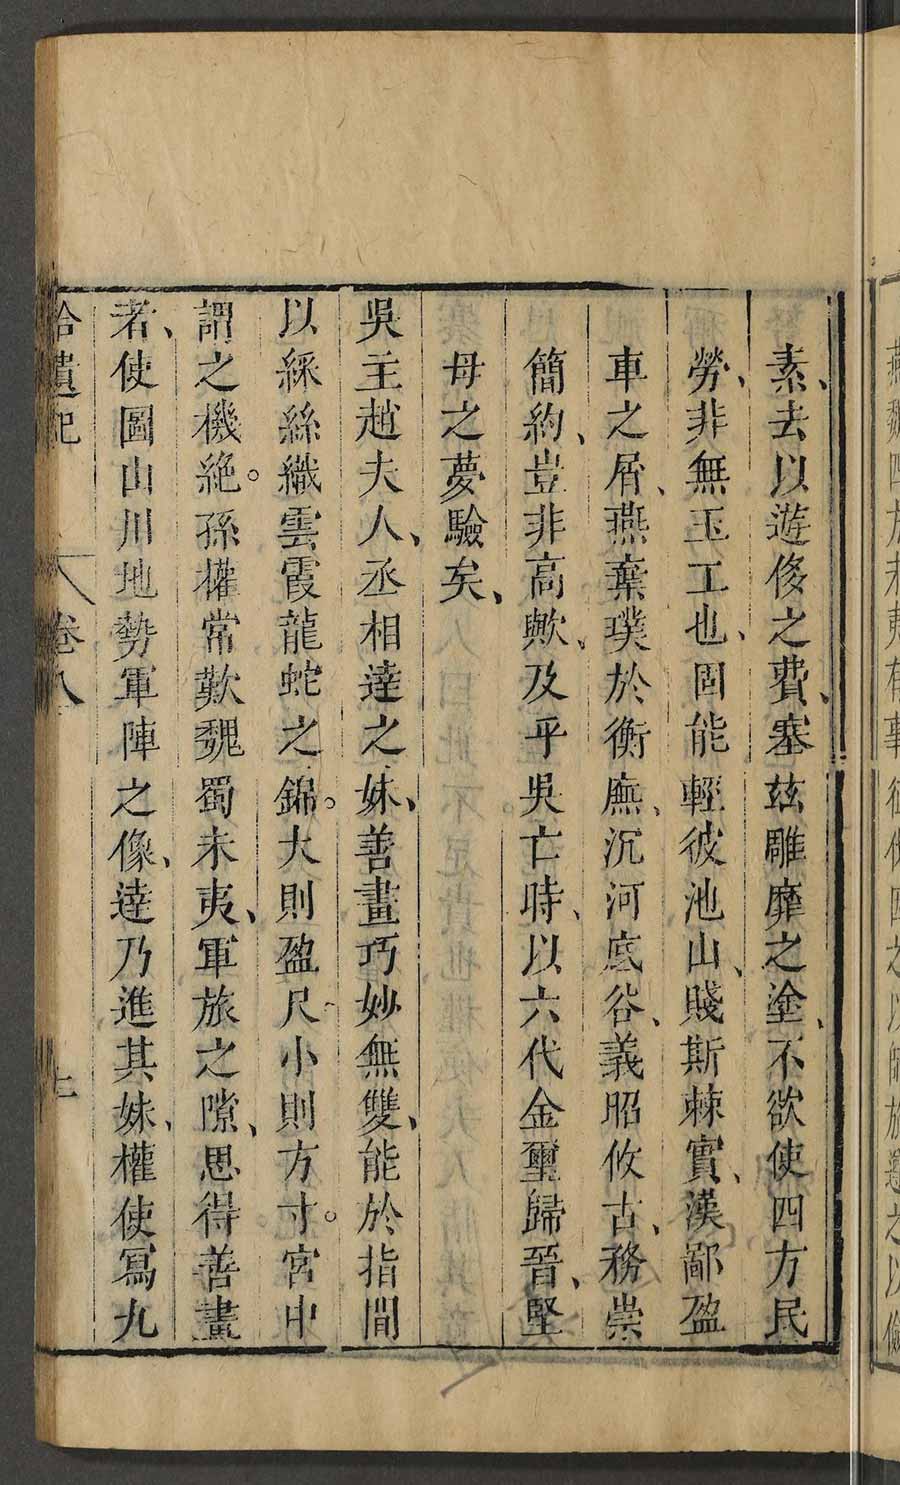 素、去以遊侈之費、塞茲雕靡之塗、不欲使四方民
勞、非無玉工也、固能輕彼池山、賤斯棘實、漢鄙盈
車之屑、燕棄璞於衡廡、沉河底谷、義昭攸古、務崇
簡約、豈非高歟、及乎吳亡時、以六代金璽歸晉、堅
母之夢驗矣、
吳主趙夫人、丞相達之妹、善畫巧妙無雙、能於指間
以綵絲織雲霞龍蛇之錦。大則盈尺、小則方寸。宮中
謂之機絕。孫權常歎魏蜀未夷、軍旅之隙、思得善畫
者、使圖山川地勢軍陣之像、達乃進其妹、權使寫九
拾遺記 卷八 七